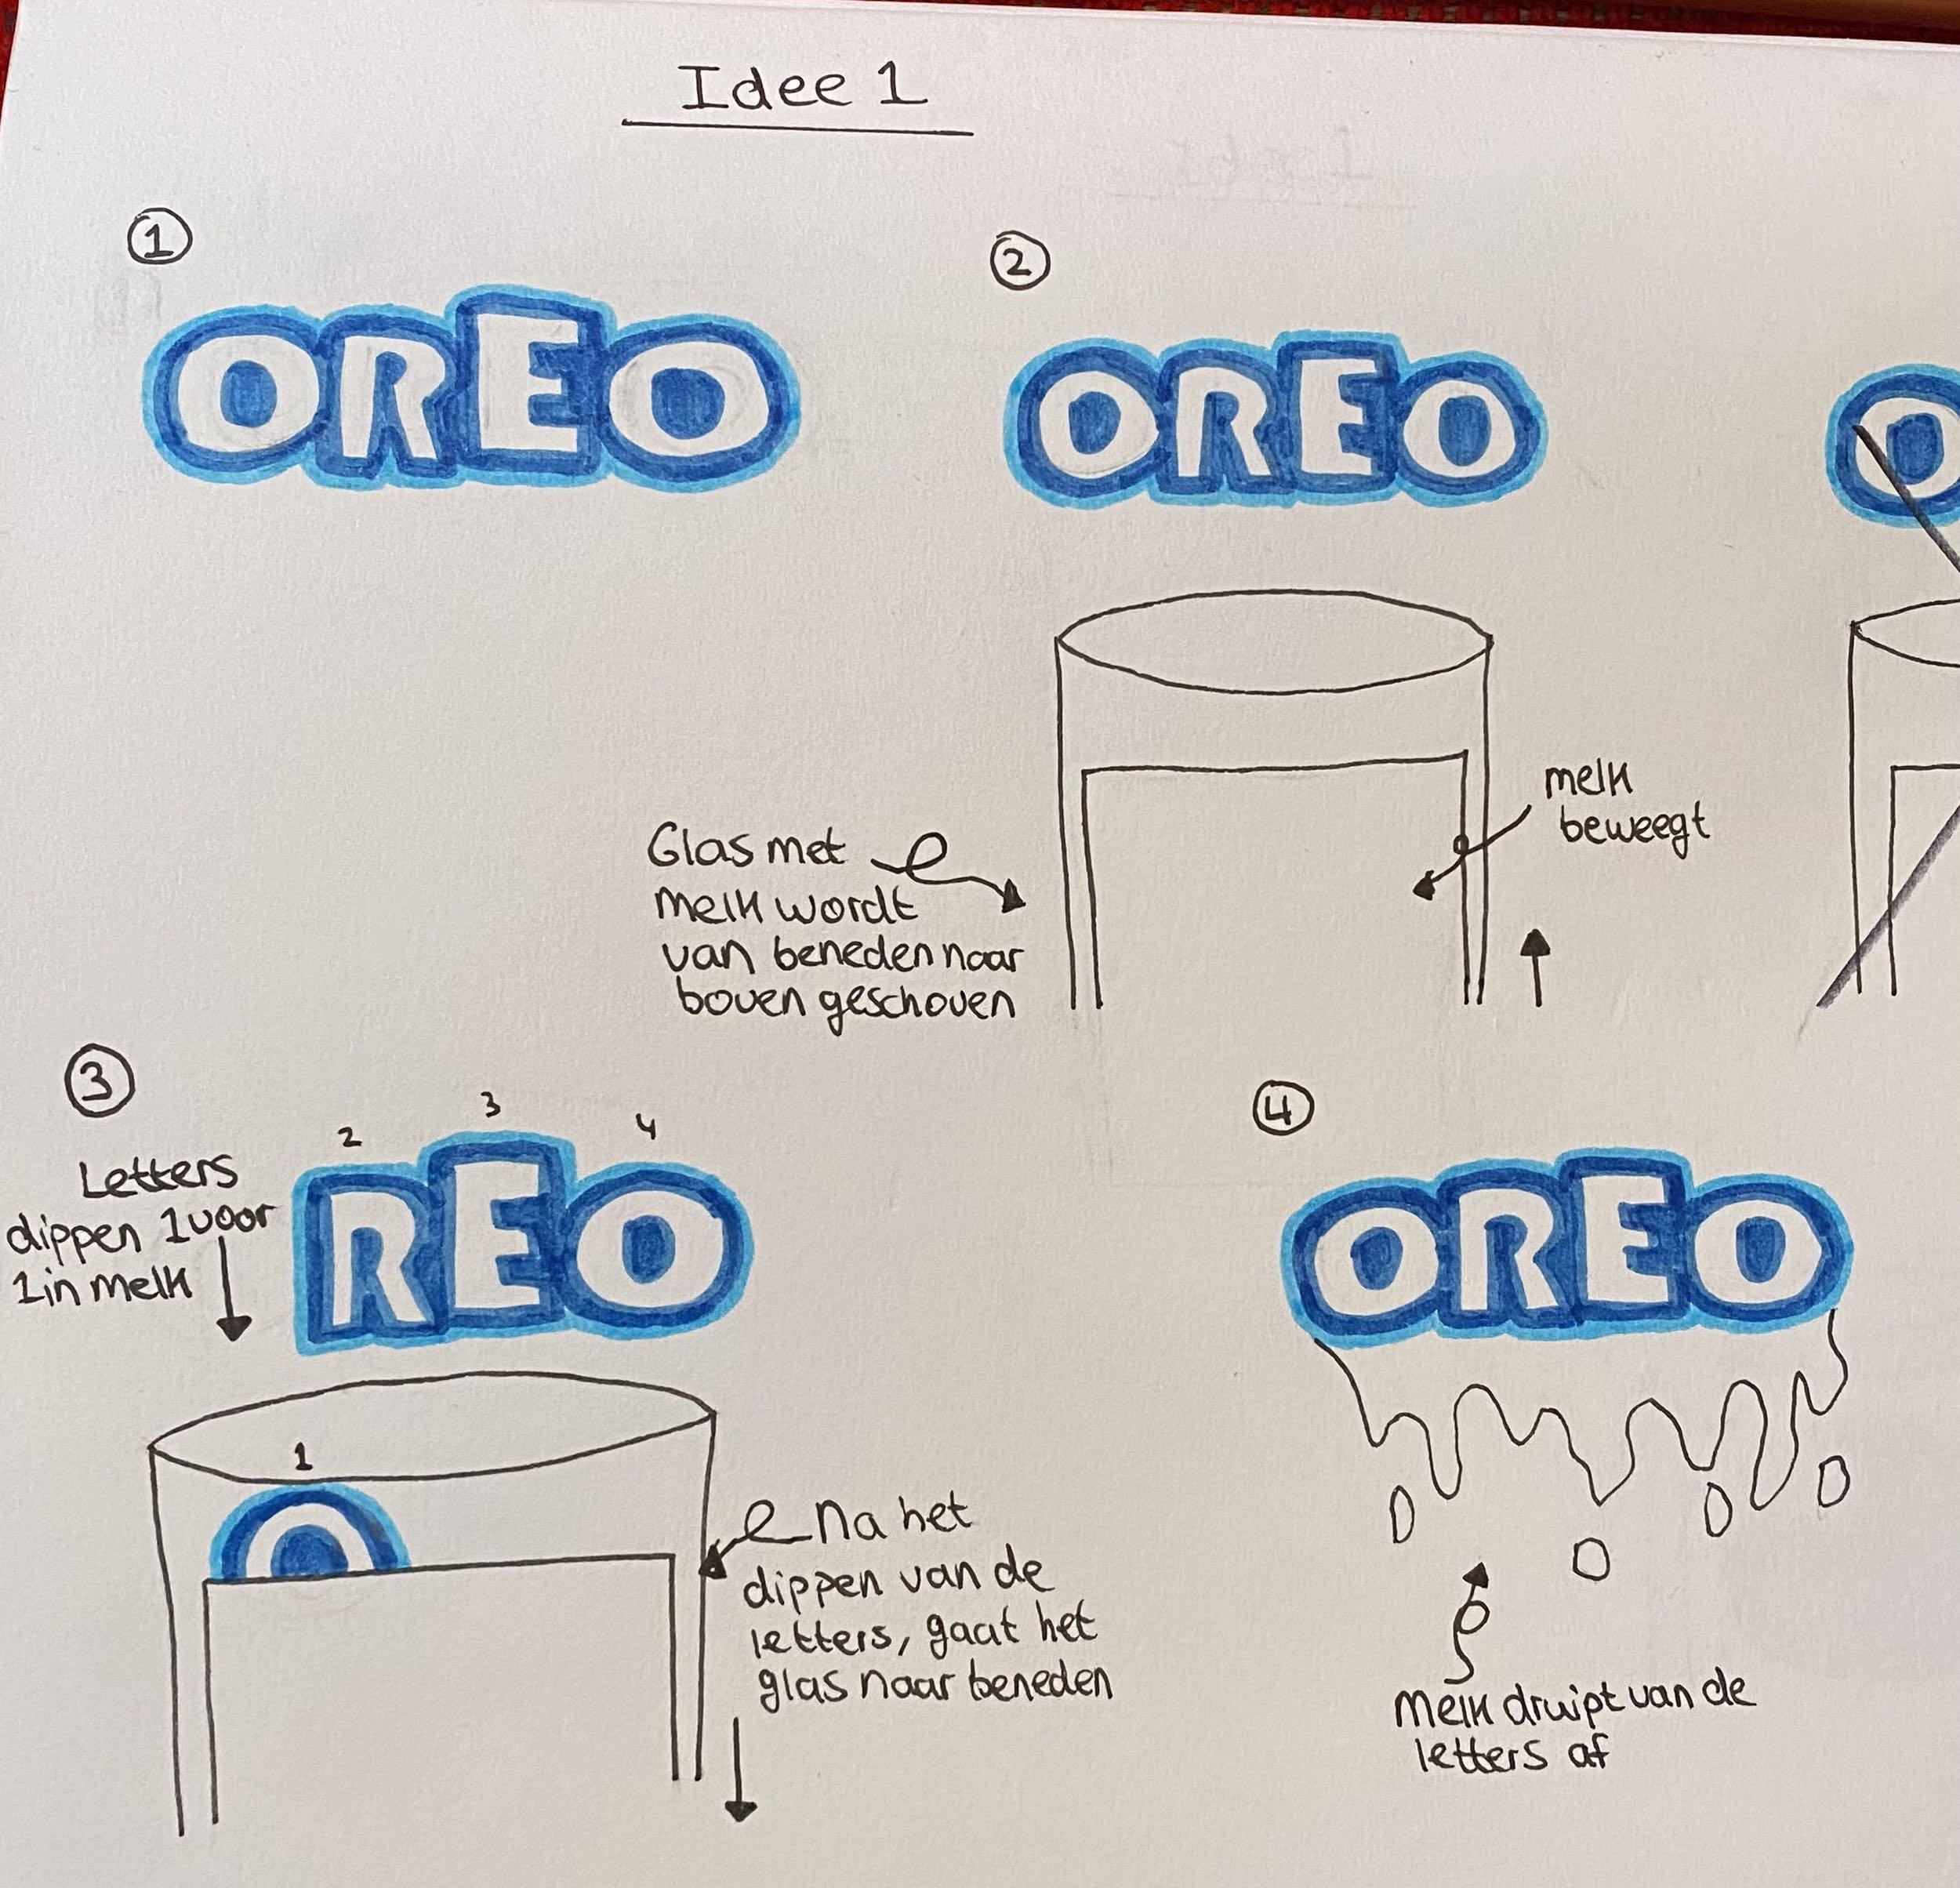 Idee 1
1
OREO
2
OREO
O
melk
beweegt
Glas met
melk wordt
van beneden naar
boven geschoven
3
2 3 4
Letters
dippen 1 voor
1 in melk
REO
1
O
Na het
dippen van de
letters, gaat het
glas naar beneden
4
OREO
Melk druipt van de
letters af